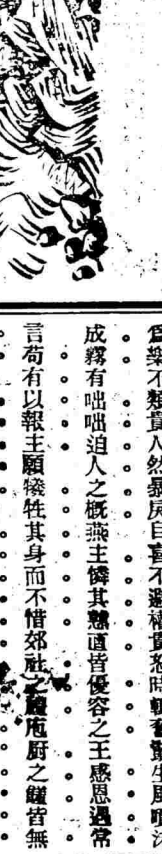 爲業不類貴人然暴戾自喜不避權貴怒時輒奮鬣生風噴沫
成霧有咄咄迫人之概燕主憐其戇直皆優容之王感恩過常
言苟有以報主願犧牲其身而不惜郊社之禮庖厨之饈皆無